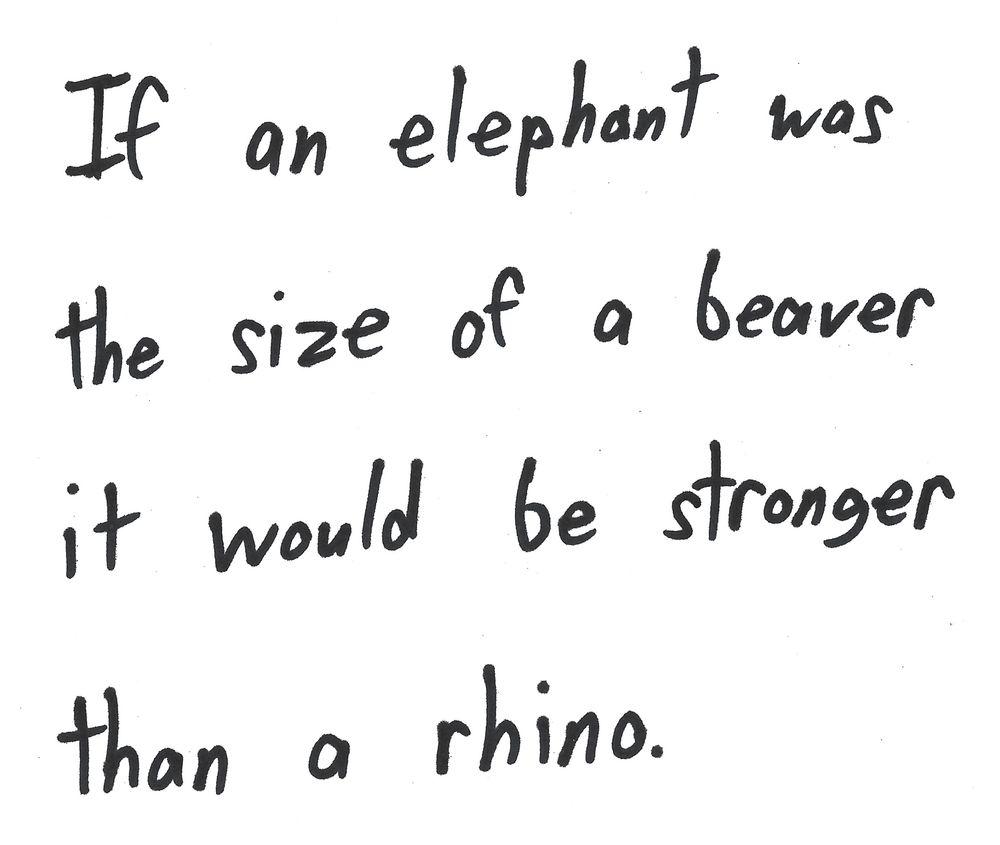 If an elephant was
the size of a beaver
it would be stronger
than a rhino.